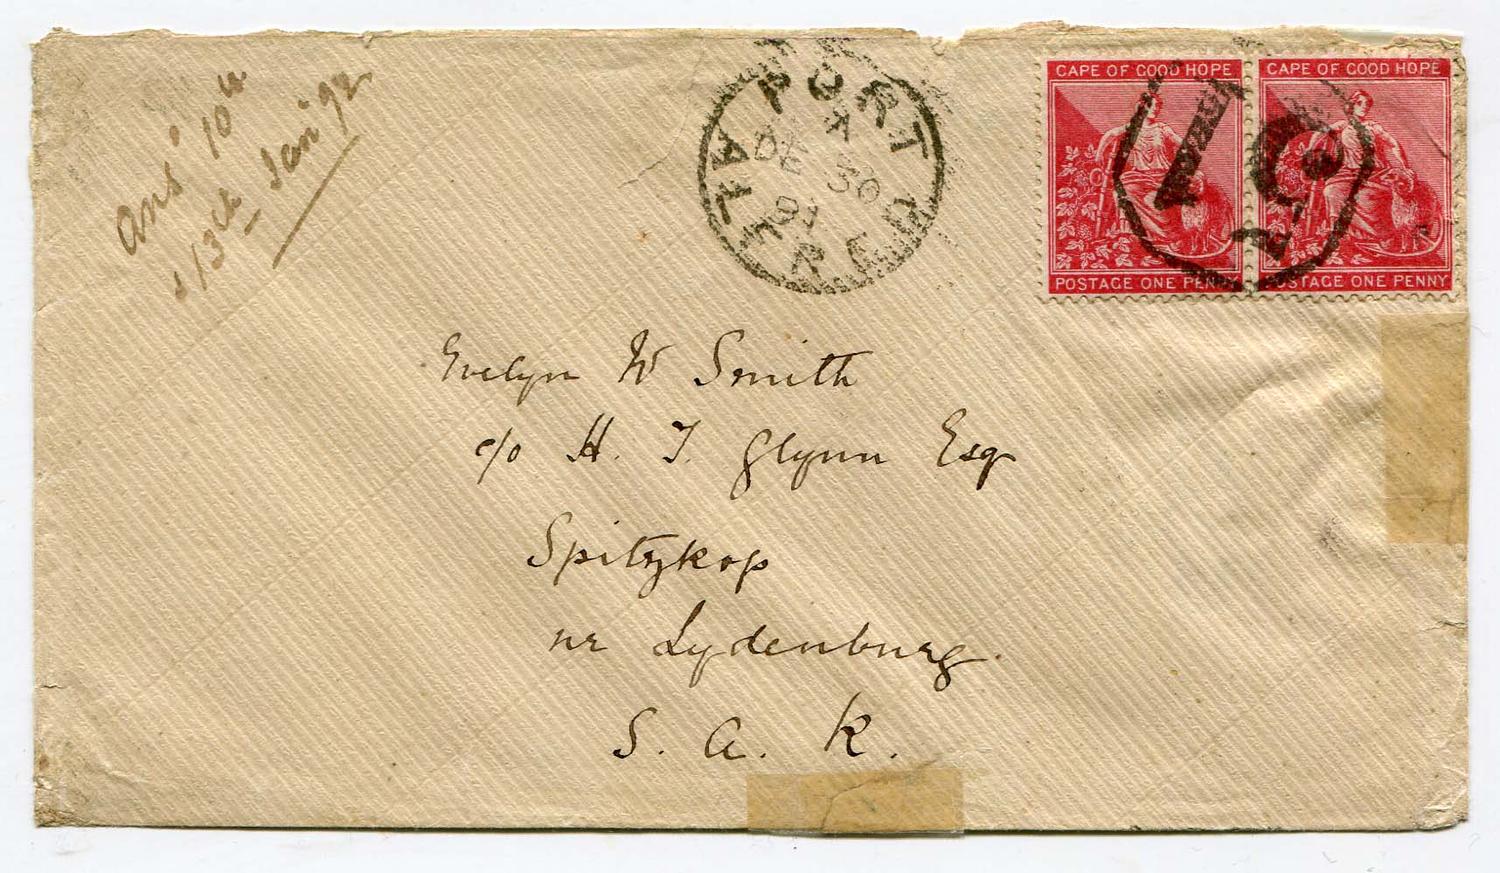 ans' 10th
& 13th Jan' 92
PORT ALFRED
X
DE 30
91
CAPE OF GOOD HOPE
POSTAGE ONE PENNY
CAPE OF GOOD HOPE
POSTAGE ONE PENNY
Evelyn W Smith
c/o H. T. Glynn Esq
Spitzkop
nr Lydenburg.
S. A. R.